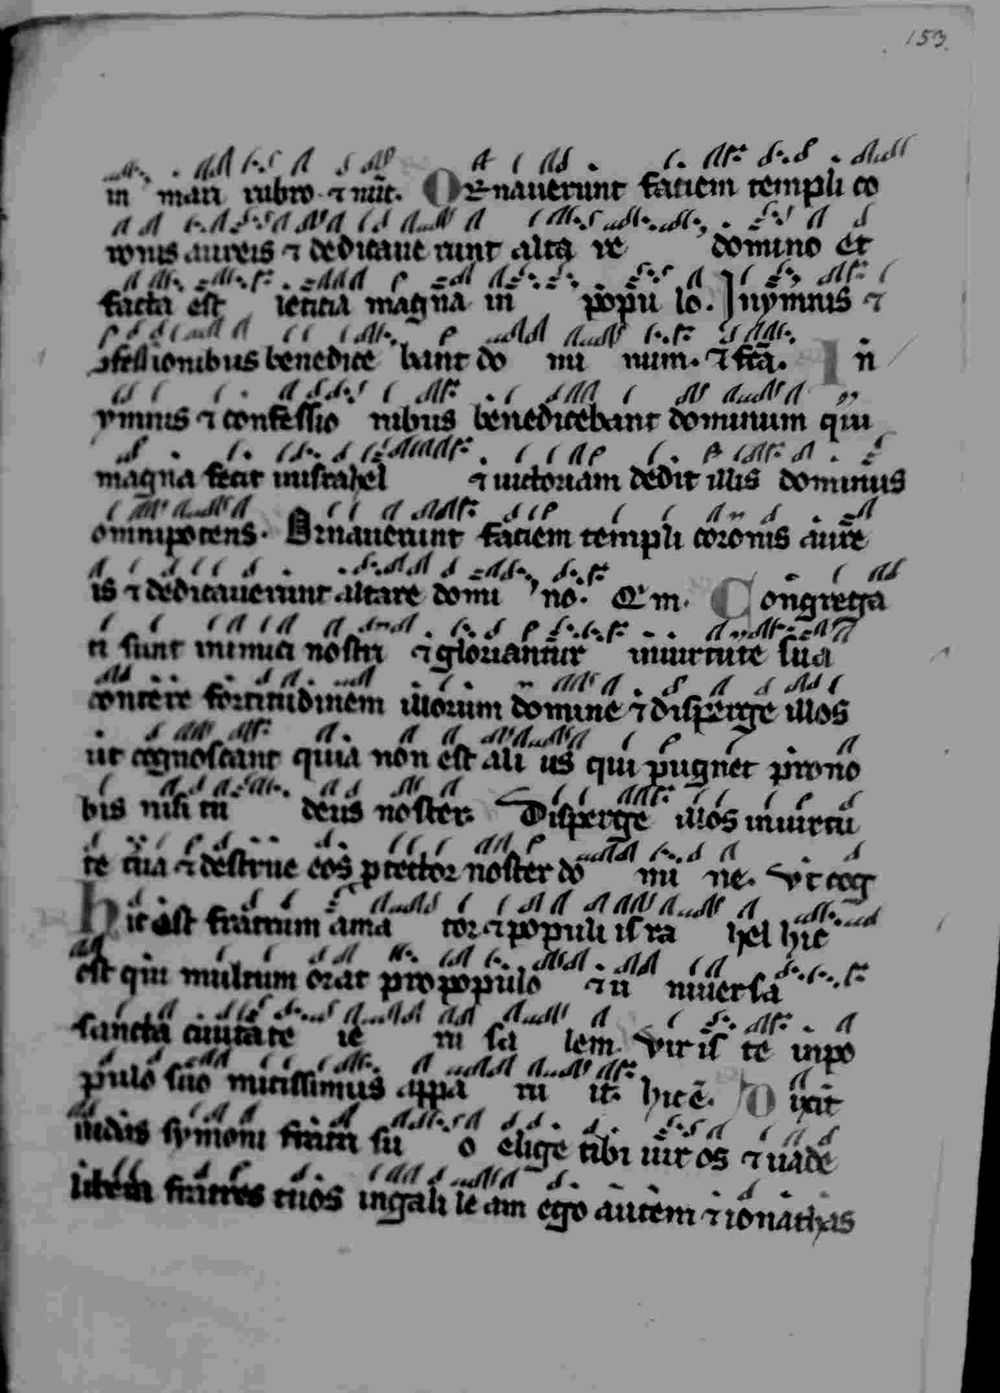 153
in mari rubro ⁊ nūc. Ornauerunt faciem templi co
ronis aureis ⁊ dedicaue runt alta re domino et
facta est leticia magna in popu lo. Inymnis ⁊
ɔfessionibus benedice bant do mi num. ⁊ fcā. In
ymnis ⁊ confessio nibus benedicebant dominum qui
magna fecit inisrahel ⁊ uictoriam dedit illis dominus
omnipotens. Ornauerunt faciem templi coronis aure
is ⁊ dedicauerunt altare domi no. Qm. Congrega
ti sunt inimici nostri ⁊ gloriantur inuirtute sua
contere fortitudinem illorum domine ⁊ disperge illos
ut cognoscant quia non est ali us qui pugnet prono
bis nisi tu deus noster. Disperge illos inuirtu
te tua ⁊ destrue eos ptector noster do mi ne. Vt cog
hic est fratrum ama tor ⁊ populi isra hel hic
est qui multum orat pro populo ⁊ u niuersa
sancta ciuitate ie ru sa lem. Vir iste inpo
pulo suo mitissimus appa ru it. hic ē. Dixit
iudas symoni fratri su o elige tibi uiros ⁊ uade
libera fratres tuos ingali le am ego autem ⁊ ionathas